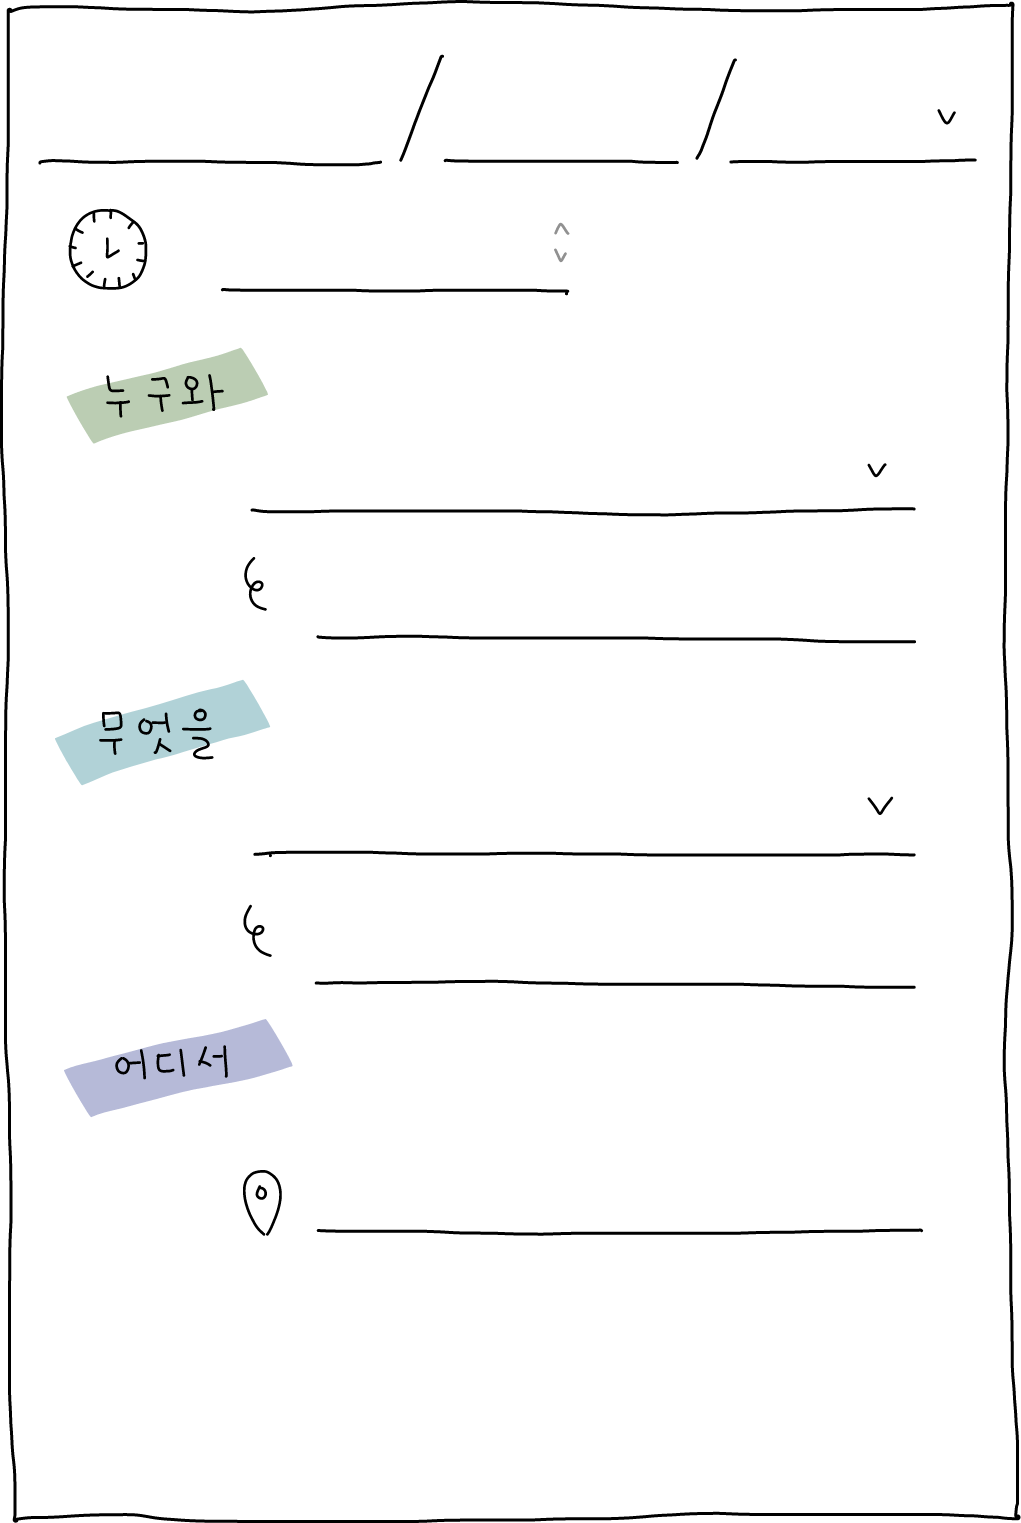 / /
누구와
무엇을
어디서